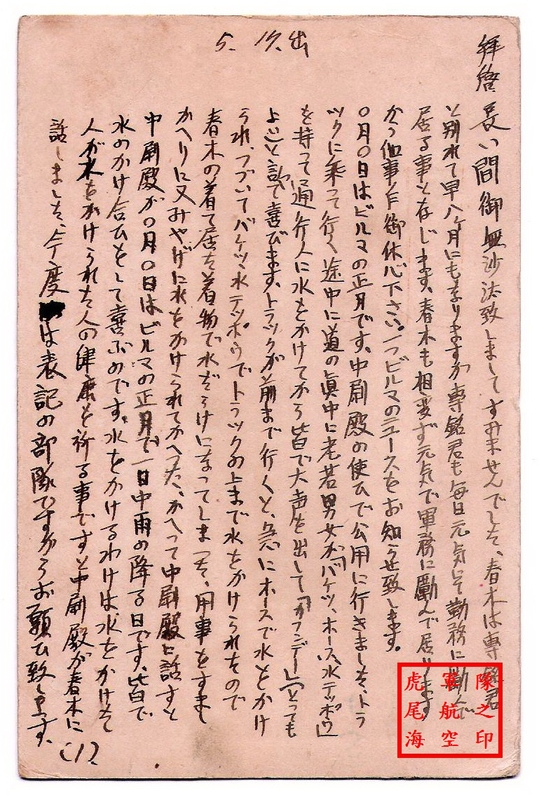 5. 17. 出
拝啓 長い間御無沙汰致しましてすみませんでした、春木は専銘君
と別れて早八ヶ月にもなりますが専銘君も毎日元気にて勤務に励んで
居る事と存じます。春木も相変ず元気で軍務に励んで居ります
から他事乍御休心下さい。一つビルマのニュースをお知らせ致します。
〇月〇日はビルマの正月です。中尉殿の使ひで公用に行きました、トラ
ックに乗って行く途中に道の真中に老若男女がバケツ、ホース、水テッポウ
を持って通行人に水をかけてから皆で大声を出して
喜びます。トラックが前まで行くと、急にホースで水をかけ
られ、つづいてバケツ、水テッポウでトラックの上まで水をかけられたので
春木の着て居た着物で水ぞろけになってしまった、用事をすまし
かへりに又みやげに水をかけられてかへった、かへって中尉殿に話すと
中尉殿が〇月〇日はビルマの正月で一日中雨の降る日です。皆で
水のかけ合ひをして喜ぶのです。水をかけるわけは水をかけた
人が水をかけられた人の健康を祈る事ですと中尉殿が春木に
話しました、今度は表記の部隊ですからお願ひ致します。
(1)
隊之印
軍航空
虎尾海